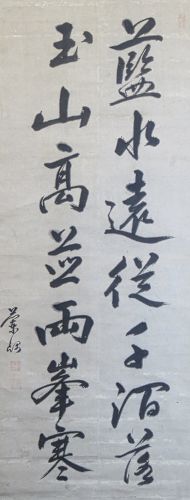 藍水遠從千澗落
玉山高並兩峯寒